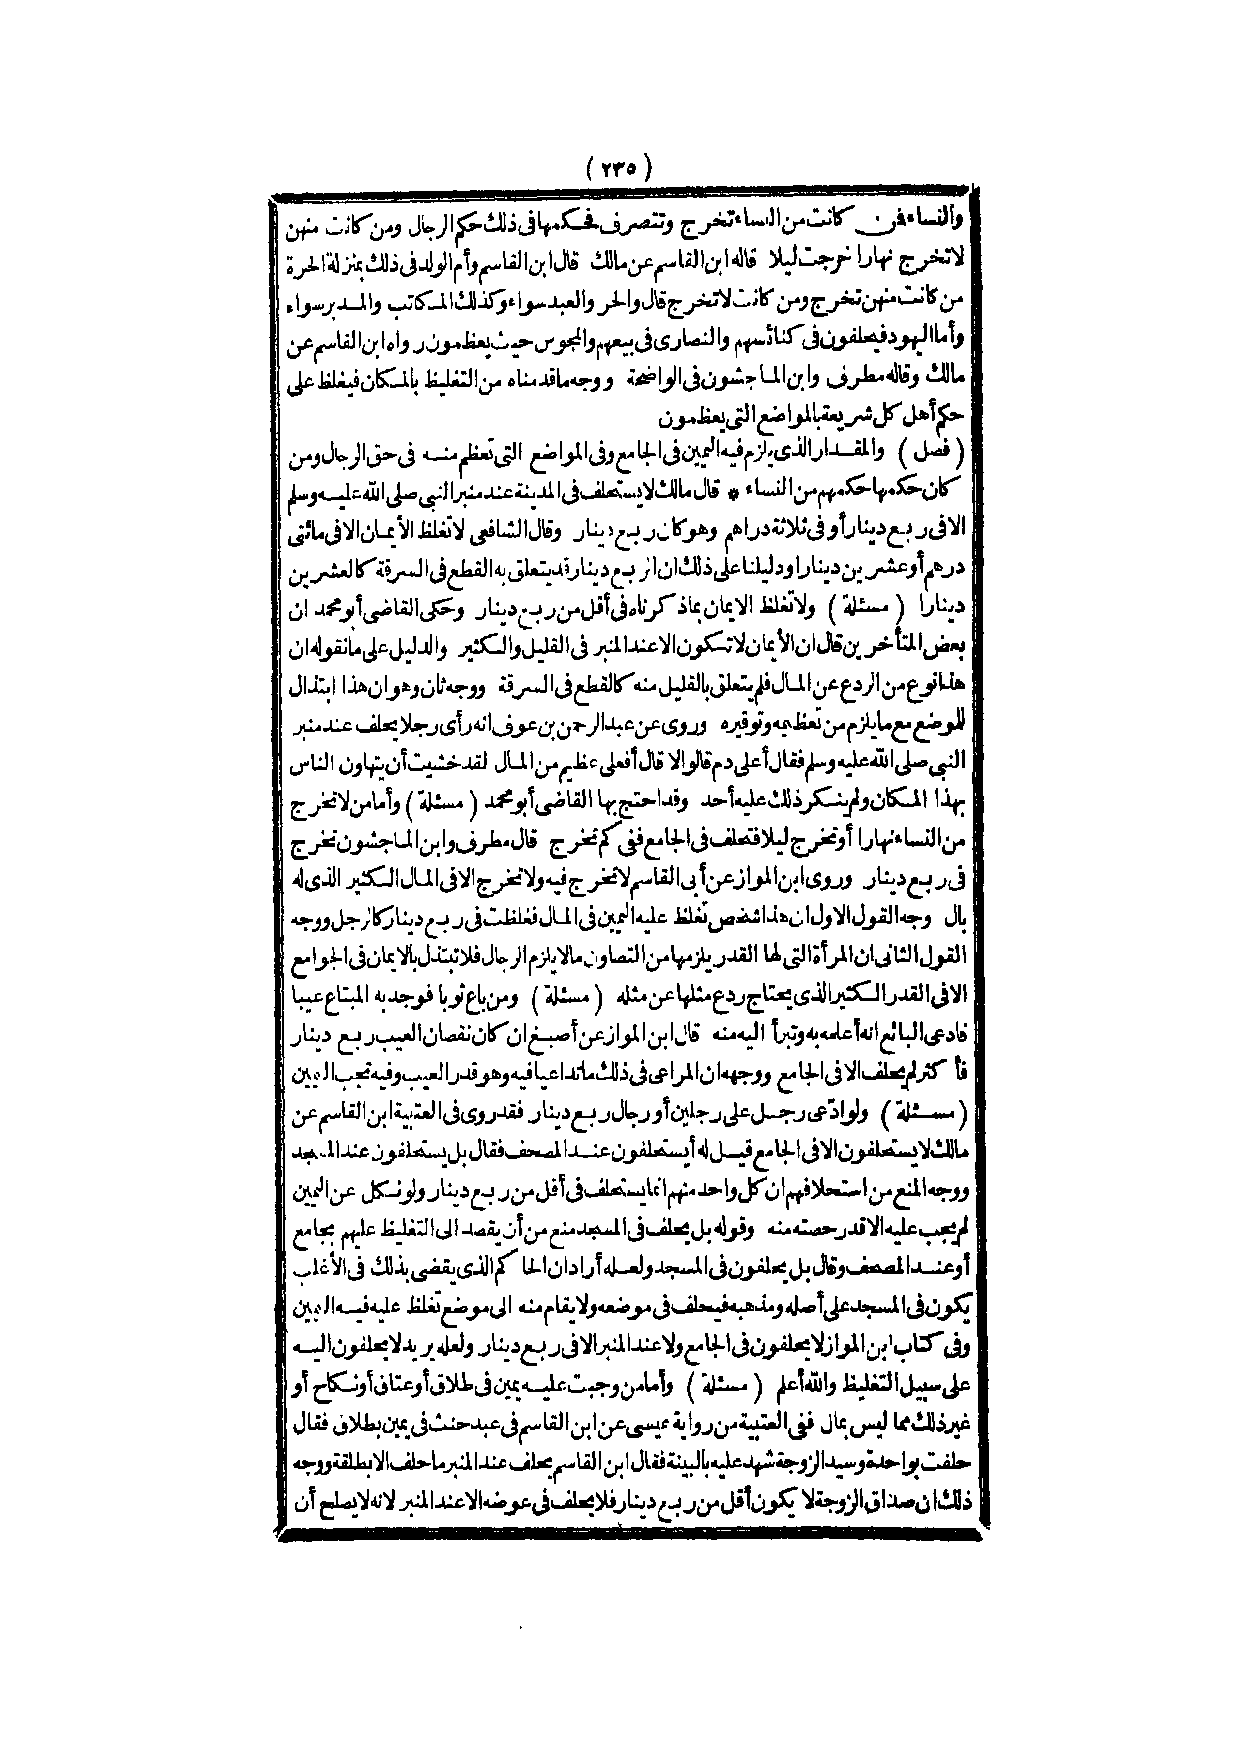 (٢٣٥)
والنساء فمن كانت من النساء تخرج وتتصرف فحكمها فى ذلك حكم الرجال ومن كانت منهن
لا تخرج نهارا خرجت ليلا قاله ابن القاسم عن مالك قال ابن القاسم وأم الولد فى ذلك بمنزلة الحرة
من كانت منهن تخرج ومن كانت لا تخرج قال والحر والعبد سواء وكذلك المكاتب والمدبر سواء
وأما اليهود فيحلفون فى كنائسهم والنصارى فى بيعهم والمجوس حيث يعظمون رواه ابن القاسم عن
مالك وقاله مطرف وابن الماجشون فى الواضحة ووجه ما قدمناه من التغليظ بالمكان فيغلظ على
حكم أهل كل شريعة بالمواضع التى يعظمون
(فصل) والمقدار الذى يلزم فيه اليمين فى الجامع وفى المواضع التى تعظم منه فى حق الرجال ومن
كان حكمها حكمهم من النساء * قال مالك لا يستحلف فى المدينة عند منبر النبى صلى الله عليه وسلم
الا فى ربع دينار أو فى ثلاثة دراهم وهو كان ربع دينار وقال الشافعى لا تغلظ الأيمان الا فى مائتى
درهم أو عشرين دينارا ودليلنا على ذلك ان الربع دينار قد يتعلق به القطع فى السرقة كالعشرين
دينارا (مسئلة) ولا تغلظ الايمان بما ذكرناه فى أقل من ربع دينار وحكى القاضى أبو محمد ان
بعض المتأخرين قال ان الأيمان لا تكون الا عند المنبر فى القليل والكثير والدليل على ما نقوله ان
هذا نوع من الردع عن المال فلم يتعلق بالقليل منه كالقطع فى السرقة ووجه ثان وهو ان هذا ابتذال
للموضع مع ما يلزم من تعظيمه وتوقيره وروى عن عبد الرحمن بن عوف انه رأى رجلا يحلف عند منبر
النبى صلى الله عليه وسلم فقال أعلى دم قالوا لا قال أفعلى عظيم من المال لقد خشيت أن يتهاون الناس
بهذا المكان ولم ينكر ذلك عليه أحد وقد احتج بها القاضى أبو محمد (مسئلة) وأما من لا تخرج
من النساء نهارا أو تخرج ليلا فتحلف فى الجامع ففى كم تخرج قال مطرف وابن الماجشون تخرج
فى ربع دينار وروى ابن المواز عن أبى القاسم لا تخرج فيه ولا تخرج الا فى المال الكثير الذى له
بال وجه القول الاول ان هذا شخص تغلظ عليه اليمين فى المال فغلظت فى ربع دينار كالرجل ووجه
القول الثانى ان المرأة التى لها القدر يلزمها من التصاون ما لا يلزم الرجال فلا تبتذل بالايمان فى الجوامع
الا فى القدر الكثير الذى يحتاج ردع مثلها عن مثله (مسئلة) ومن باع ثوبا فوجد به المبتاع عيبا
فادعى البائع انه أعلمه به وتبرأ اليه منه قال ابن المواز عن أصبغ ان كان نقصان العيب ربع دينار
فأكثر لم يحلف الا فى الجامع ووجهه ان المراعى فى ذلك ما تداعيا فيه وهو قدر العيب وفيه تجب اليمين
(مسئلة) ولو ادّعى رجل على رجلين أو رجال ربع دينار فقد روى فى العتبية ابن القاسم عن
مالك لا يستحلفون الا فى الجامع قيل له أيستحلفون عند المصحف فقال بل يستحلفون عند المسجد
ووجه المنع من استحلافهم ان كل واحد منهم انما يستحلف فى أقل من ربع دينار ولو نكل عن اليمين
لم يجب عليه الا قدر حصته منه وقوله بل يحلف فى المسجد منع من أن يقصد الى التغليظ عليهم بجامع
أو عند المصحف وقال بل يحلفون فى المسجد ولعله أراد ان الحاكم الذى يقضى بذلك فى الأغلب
يكون فى المسجد على أصله ومذهبه فيحلف فى موضعه ولا يقام منه الى موضع تغلظ عليه فيه اليمين
وفى كتاب ابن المواز لا يحلفون فى الجامع ولا عند المنبر الا فى ربع دينار ولعله يريد لا يحلفون اليه
على سبيل التغليظ والله أعلم (مسئلة) وأما من وجبت عليه يمين فى طلاق أو عتاق أو نكاح أو
غير ذلك مما ليس بمال ففى العتبية من رواية عيسى عن ابن القاسم فى عبد حنث فى يمين بطلاق فقال
حلفت بواحدة وسيد الزوجة شهد عليه بالبينة فقال ابن القاسم يحلف عند المنبر ما حلف الا بطلقة ووجه
ذلك ان صداق الزوجة لا يكون أقل من ربع دينار فلا يحلف فى عوضه الا عند المنبر لانه لا يصلح أن